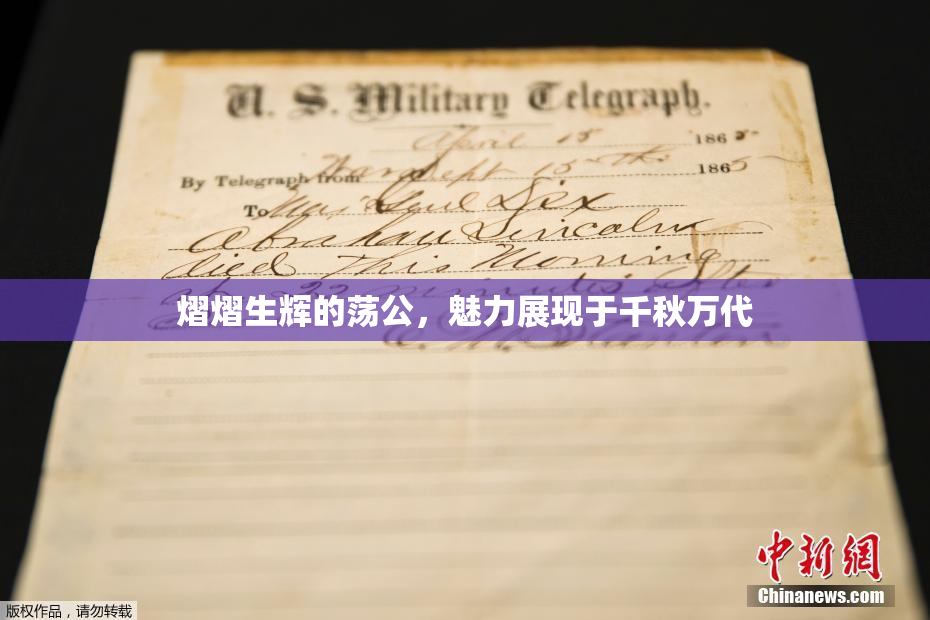 U. S. Military Telegraph.
April 15 1865
By Telegraph from War Dept 15th 1865
To Maj Genl Dix
Abraham Lincoln
died This Morning
at 22 minutes after
熠熠生辉的荡公，魅力展现于千秋万代
E. M. Stanton
中新网
Chinanews.com
版权作品，请勿转载